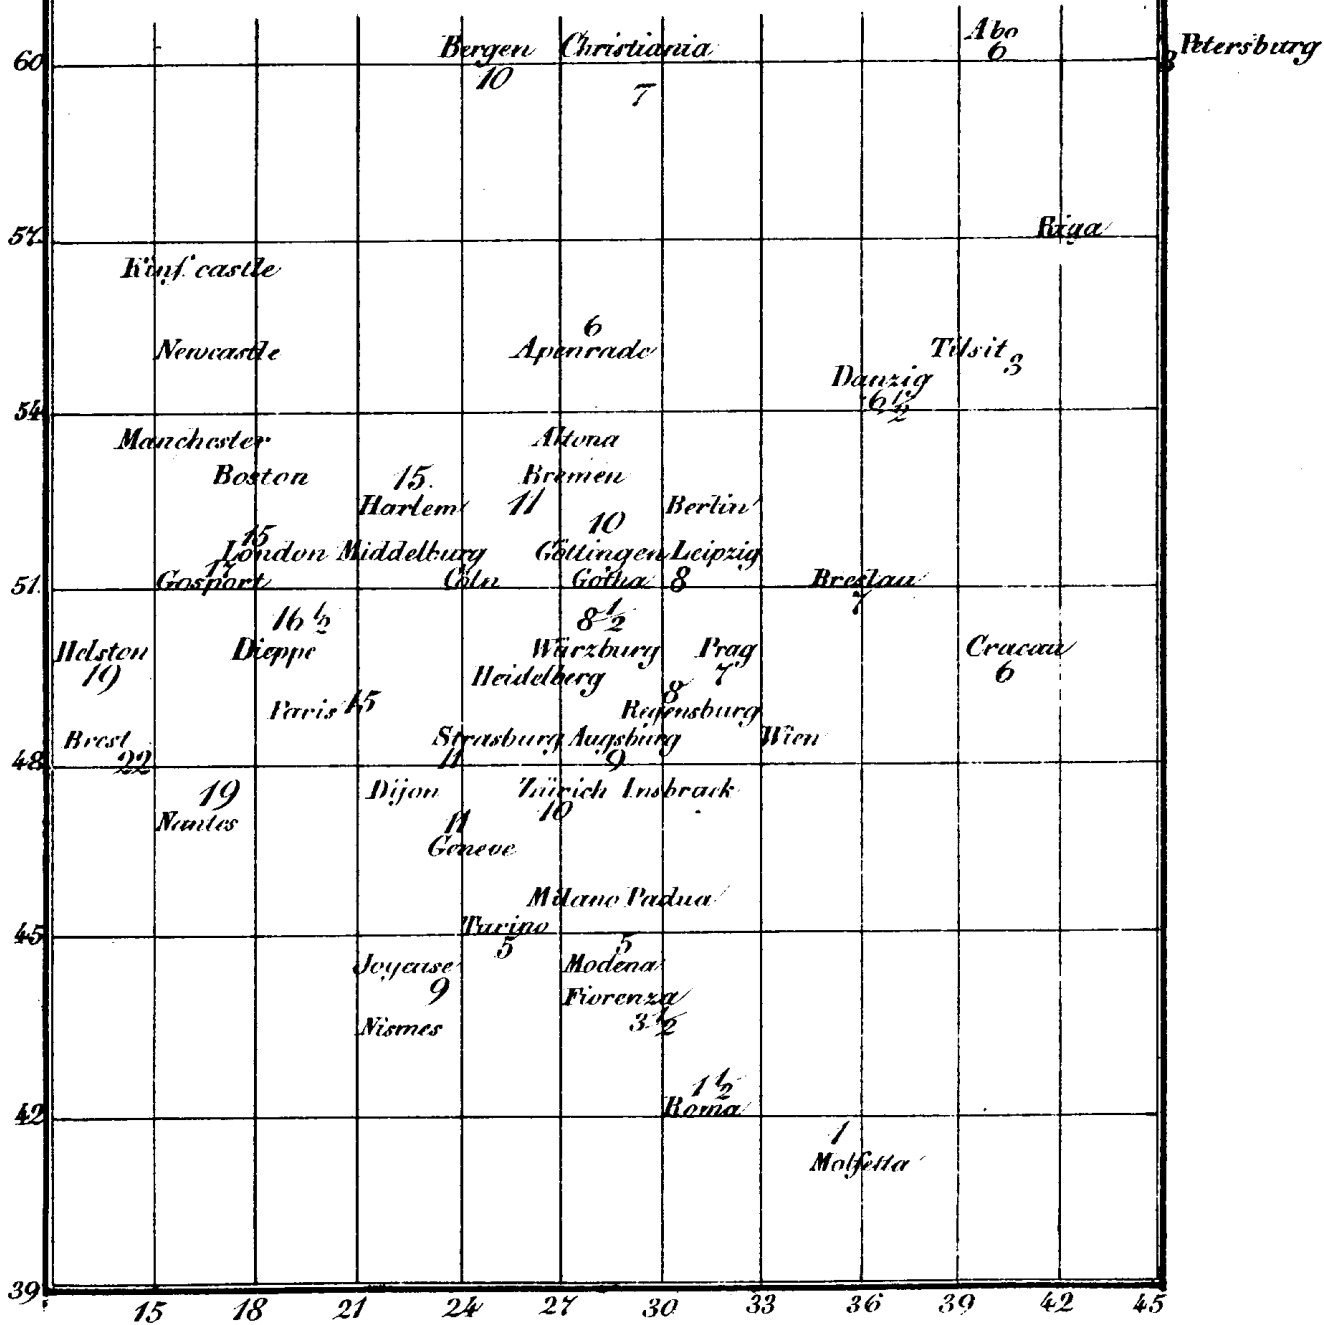 Abo
Bergen Christiania 6 Petersburg
60 8
10
7
57 Riga
Kinf. castle
6
Newcastle Apenrade Tilsit
3
Danzig
6 1/2
54
Manchester Altona
Boston 15. Bremen
Harlem 11 Berlin
10
15
London Middelburg Göttingen Leipzig
17
Gosport Cöln Gotha 8 Breslau
51
7
16 1/2 8 1/2
Helston Dieppe Würzburg Prag Cracau
19 Heidelberg 7 6
8
Paris 15 Regensburg
Brest Strasburg Augsburg Wien
22 11 9
48
19 Dijon Zürich Insbrack
10
Nantes 11
Geneve
Milano Padua
Turino
45
5 5
Joyeuse Modena
9 Fiorenza
3 1/2
Nismes
1 1/2
42 Roma
1
Molfetta
39
15 18 21 24 27 30 33 36 39 42 45